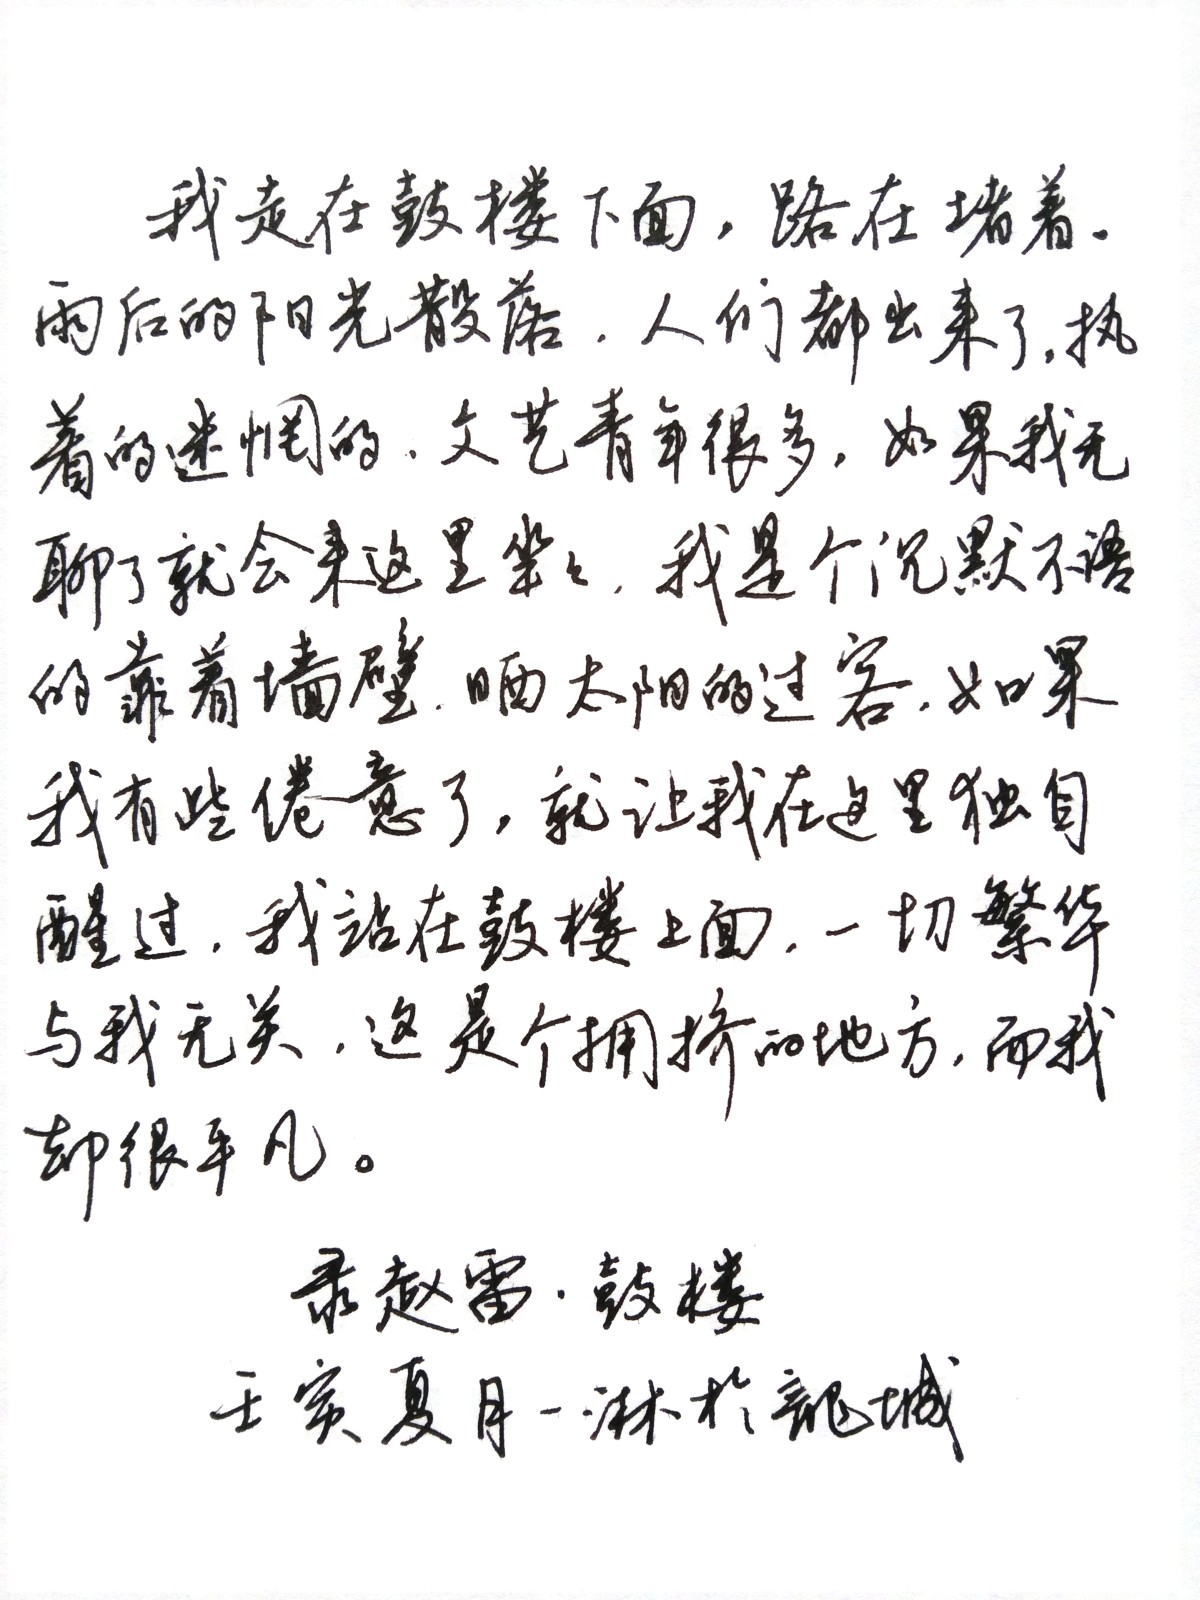 我走在鼓楼下面，路在堵着.
雨后的阳光散落.人们都出来了,执
着的迷惘的.文艺青年很多,如果我无
聊了就会来这里坐々.我是个沉默不语
的靠着墙壁.晒太阳的过客.如果
我有些倦意了,就让我在这里独自
醒过.我站在鼓楼上面.一切繁华
与我无关.这是个拥挤的地方.而我
却很平凡。
录赵雷·鼓楼
壬寅夏月一淋於龍城